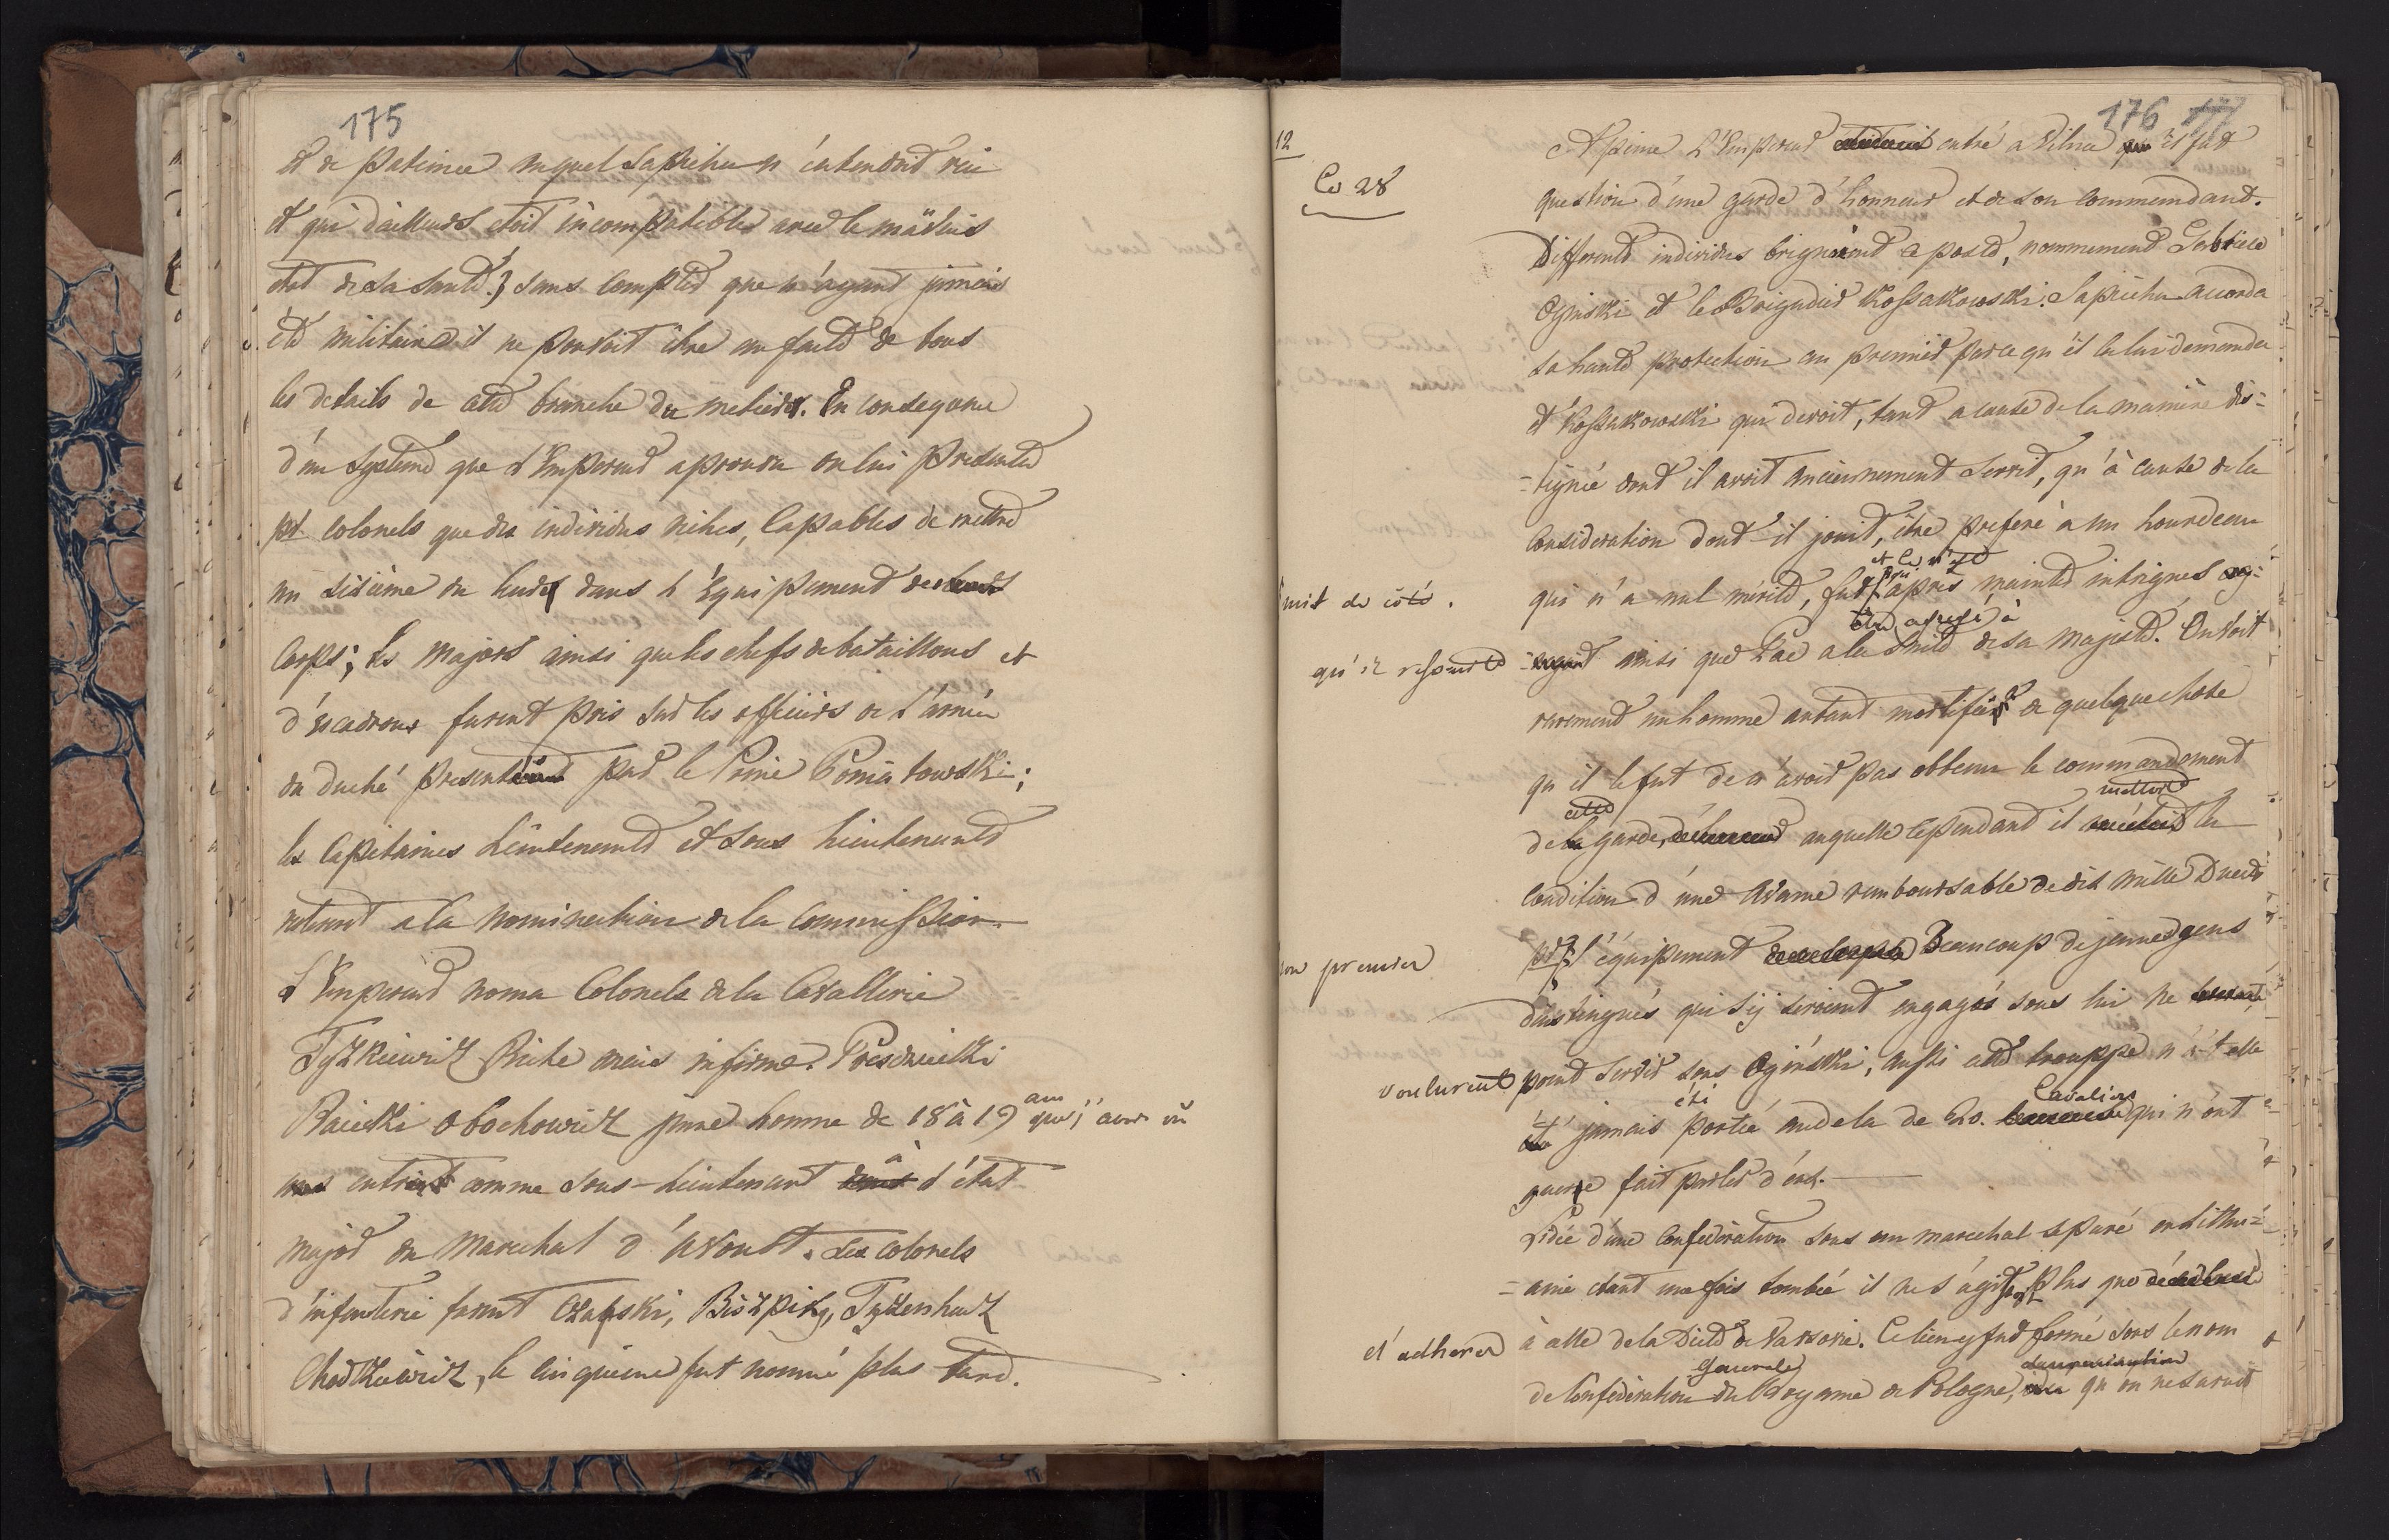 175
et de patience auquel Sapieha n'entendoit rien
et qui d'ailleurs etoit incompatible avec le mauvais
etat de sa santé; sans compter que n'ayant jamais
été militaire il ne pouvoit être au fait de tous
les details de cette branche du metier. En consequence
d'un systeme que l'Empereur aprouva on lui presenta
pr. colonels que des individus riches, capables de mettre
un sisième du leur dans l'équipement
Corps; les majors ainsi que les chefs de bataillons et
d'escadrons furent pris sur les officiers de l'armée
du duché presentés par le Prince Poniatowski;
les Capitaines Lieutenants et sous lieutenants
a la nomination de la Commission.
L'Empereur noma Colonels de la Cavallerie
Tyszkiewicz Riche mais infirme. Przezdziecki
Raiecki Obochowicz jeune homme de 18 à 19 ans que j'avois vu
entrer comme sous-lieutenant à l'état
major du Marechal d'Avoust. Les colonels
d'infanterie furent Czapski, Biszping, Tyzenhauz
Chodkiewicz, le cinquieme fut nommé plus tard.
176 177
12
Ce 28
A peine l'Empereur entré a Vilna il fut
question d'une garde d'honneur et de son commendant.
Differents individus briguèrent ce poste, nommement Gabriel
Oginski et le Brigadier Kossakowski. Sapieha accorda
sa haute protection au premier parce qu'il la lui demanda
et Kossakowski qui devoit, tant a cause de la manière dis=
=tignée dont il avoit anciennement servit, qu'à cause de la
consideration dont il jouit, être preferé a un lourdeau
et ce n'est
qui n'a nul mérite, fut après mainte intrigues
mis de côté.
qu'il
ainsi que Pac a la suite de sa Majesté. On voit
rarement un homme autant mortifié de quelque chose
qu'il le fut de n'avoir pas obtenu le commandement
cette
mettoit
de la garde, auquelle cependant il la
condition d'une avance remboursable de dix mille Ducats
pr l'équipement Beaucoup de jeunes gens
premier
distingués qui s'y seroient engagés sous lui ne
voulurent point servir sous Oginski, aussi cette trouppe n'a t elle
été
Cavaliers
jamais portée audela de 20. qui n'ont
guere fait parler d'eux.
L'idée d'une Confederation sous un marechal separé en Lithu=
=anie etant une fois tombée il ne s'agit plus que
d'adherer
à celle de la Diete de Varsovie. Celle cy fut formée sous le nom
Generale
denomination
de Confederation du Royaume de Pologne, qu'on ne